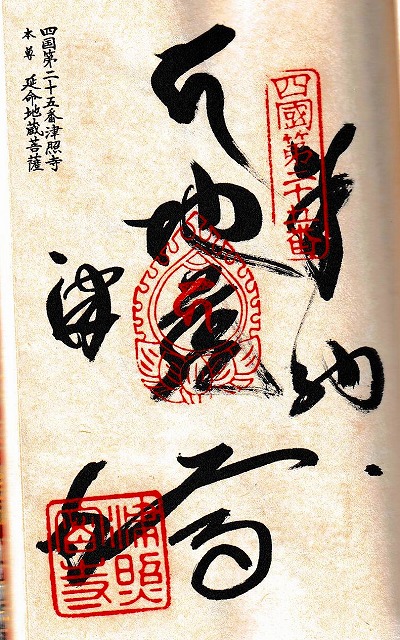 四国第二十五番津照寺
本尊 延命地蔵菩薩
四國第二十五番
奉納
地蔵
津
寺
津照
寺